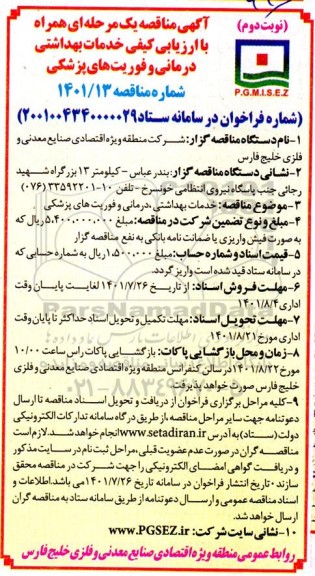 (نوبت دوم)
آگهی مناقصه یک مرحله ای همراه
با ارزیابی کیفی خدمات بهداشتی
درمانی و فوریت های پزشکی
شماره مناقصه ۱۴۰۱/۱۳
P.G.M.I.S.E.Z
(شماره فراخوان در سامانه ستاد ۲۰۰۱۰۰۴۳۴۰۰۰۰۰۲۹)
۱-نام دستگاه مناقصه گزار: شرکت منطقه ویژه اقتصادی صنایع معدنی و
فلزی خلیج فارس
۲-نشانی دستگاه مناقصه گزار: بندرعباس - کیلومتر ۱۳ بزرگراه شهید
رجائی جنب پاسگاه نیروی انتظامی خونسرخ - تلفن ۱۰-۳۳۵۹۲۲۰۱ (۰۷۶)
۳-موضوع مناقصه: خدمات بهداشتی ،درمانی و فوریت های پزشکی
۴-مبلغ و نوع تضمین شرکت در مناقصه: مبلغ ۵,۴۰۰,۰۰۰,۰۰۰ ریال که
به صورت فیش واریزی یا ضمانت نامه بانکی به نفع مناقصه گزار
۵-قیمت اسناد و شماره حساب: مبلغ ۱,۵۰۰,۰۰۰ ریال به شماره حسابی که
در سامانه ستاد قید شده است واریز گردد.
۶-مهلت فروش اسناد: از تاریخ ۱۴۰۱/۷/۲۶ لغایت پایان وقت
اداری ۱۴۰۱/۸/۴
۷-مهلت تحویل اسناد: مهلت تکمیل و تحویل اسناد حداکثر تا پایان وقت
اداری مورخ ۱۴۰۱/۸/۲۱
۸-زمان و محل بازگشایی پاکات: بازگشایی پاکات راس ساعت ۱۰/۰۰
مورخ ۱۴۰۱/۸/۲۲ در سالن کنفرانس منطقه ویژه اقتصادی صنایع معدنی و فلزی
خلیج فارس صورت خواهد پذیرفت.
۹-کلیه مراحل برگزاری فراخوان از دریافت و تحویل اسناد مناقصه تا ارسال
دعوتنامه جهت سایر مراحل مناقصه ،از طریق درگاه سامانه تدارکات الکترونیکی
دولت (ستاد) به آدرس www.setadiran.ir انجام خواهد شد. لازم است
مناقصه گران در صورت عدم عضویت قبلی ،مراحل ثبت نام در سایت مذکور
و دریافت گواهی امضای الکترونیکی را جهت شرکت در مناقصه محقق
سازند. تاریخ انتشار فراخوان در سامانه تاریخ ۱۴۰۱/۷/۲۶ می باشد. اطلاعات و
اسناد مناقصه عمومی و ارسال دعوتنامه از طریق سامانه ستاد به مناقصه گران
ارسال خواهد شد.
۱۰-نشانی سایت شرکت: www.PGSEZ.ir
روابط عمومی منطقه ویژه اقتصادی صنایع معدنی و فلزی خلیج فارس